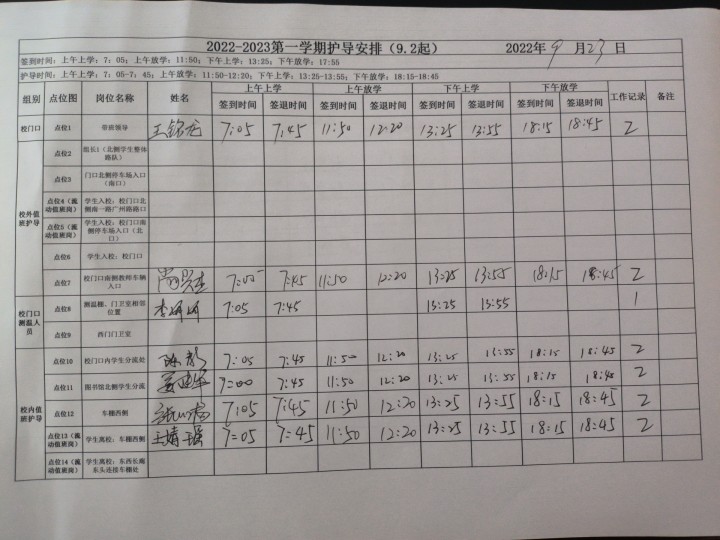 2022-2023第一学期护导安排（9.2起） 2022年 9 月 23 日
签到时间：上午上学：7：05；上午放学：11:50；下午上学：13:25；下午放学：17:55
护导时间：上午上学：7：05-7：45；上午放学：11:50-12:20；下午上学：13:25-13:55；下午放学：18:15-18:45
组别 点位图 岗位名称 姓名 上午上学 上午放学 下午上学 下午放学 工作记录 备注
签到时间 签退时间 签到时间 签退时间 签到时间 签退时间 签到时间 签退时间
校门口 点位1 带班领导 王铭龙 7:05 7:45 11:50 12:20 13:25 13:55 18:15 18:45 2
校外值班护导 点位2 组长1（北侧学生整体路队）
点位3 门口北侧停车场入口（南口）
点位4（流动值班岗） 学生入校：校门口北侧南一路广州路路口
点位5（流动值班岗） 学生入校：校门口南侧停车场入口（北口）
点位6 学生入校：校门口
点位7 校门口南侧教师车辆入口 7:05 7:45 11:50 12:20 13:25 13:55 18:15 18:45 2
校门口测温人员 点位8 测温棚、门卫室相邻位置 7:05 7:45 13:25 13:55 1
点位9 西门门卫室
校内值班护导 点位10 校门口内学生分流处 7:05 7:45 11:50 12:20 13:25 13:55 18:15 18:45 2
点位11 图书馆北侧学生分流 7:00 7:45 11:50 12:20 13:25 13:55 18:15 18:45 2
点位12 车棚西侧 7:05 7:45 11:50 12:20 13:25 13:55 18:15 18:45 2
点位13（流动值班岗） 学生离校：车棚西侧 7:05 7:45 11:50 12:20 13:25 13:55 18:15 18:45 2
点位14（流动值班岗） 学生离校：东西长廊东头连接车棚处